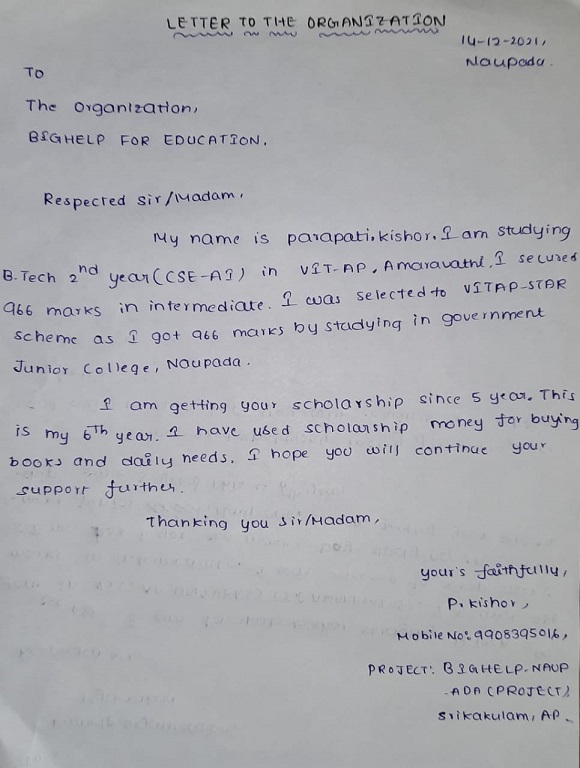 LETTER TO THE ORGANIZATION
14-12-2021,
Naupada.
To
The organization,
BIGHELP FOR EDUCATION.
Respected Sir/Madam,
My name is parapati.kishor. I am studying
B.Tech 2nd year (CSE-AI) in VIT-AP, Amaravathi. I secured
966 marks in intermediate. I was selected to VITAP-STAR
scheme as I got 966 marks by studying in government
Junior College, Naupada.
I am getting your scholarship since 5 year. This
is my 6th year. I have used scholarship money for buying
books and daily needs. I hope you will continue your
support further.
Thanking you Sir/Madam,
your's faithfully,
P. Kishor,
Mobile No: 9908395016,
PROJECT: BIGHELP-NAUP
-ADA (PROJECT)
Srikakulam, AP.